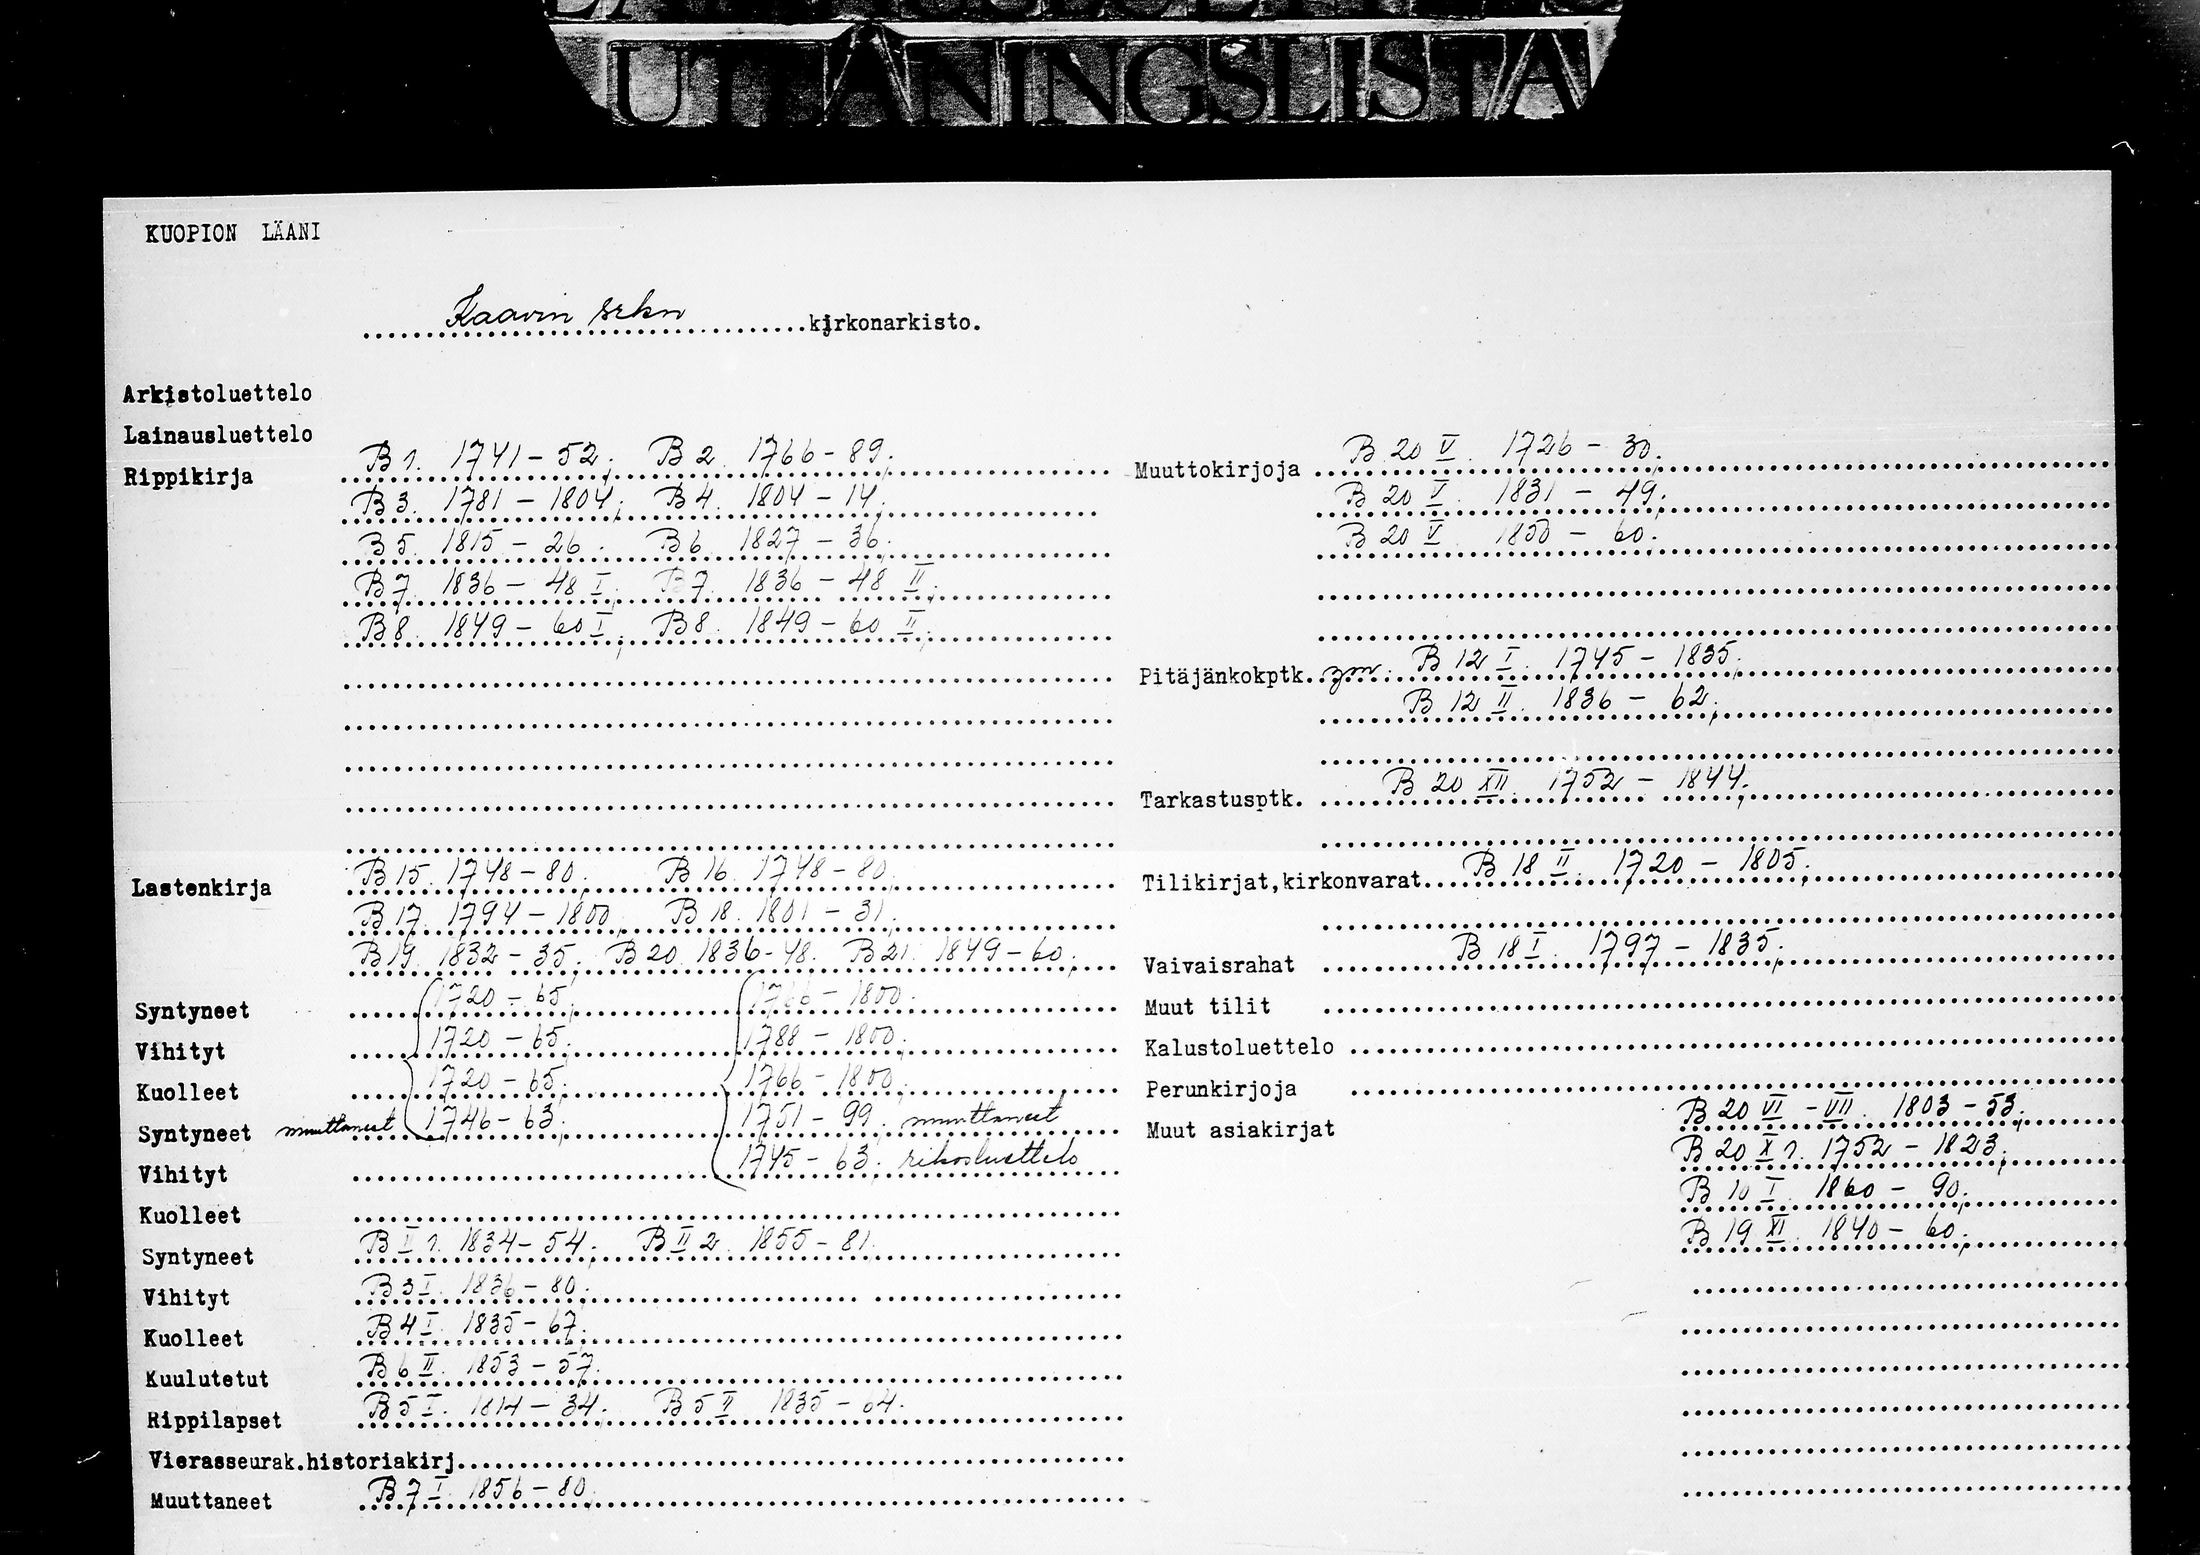 UTLÅNINGSLISTA
KUOPION LÄÄNI
Kaavin srkn kirkonarkisto.
Arkistoluettelo
Lainausluettelo
Rippikirja B 1. 1741 - 52; B 2. 1766 - 89;
B 3. 1781 - 1804; B 4. 1804 - 14;
B 5. 1815 - 26. B 6. 1827 - 36.
B 7. 1836 - 48 I; B 7. 1836 - 48 II;
B 8. 1849 - 60 I; B 8. 1849 - 60 II;
Lastenkirja B 15. 1748 - 80; B 16. 1748 - 80;
B 17. 1794 - 1800; B 18. 1801 - 31;
B 19. 1832 - 35; B 20. 1836 - 48. B 21. 1849 - 60;
Syntyneet 1720 - 65; 1766 - 1800.
Vihityt 1720 - 65; 1788 - 1800.
Kuolleet 1720 - 65; 1766 - 1800.
Syntyneet muuttaneet 1746 - 63; 1751 - 99. muuttaneet
Vihityt 1745 - 63. rikosluettelo
Kuolleet
Syntyneet B II 1. 1834 - 54; B II 2. 1855 - 81.
Vihityt B 3 I. 1836 - 80;
Kuolleet B 4 I. 1835 - 67;
Kuulutetut B 6 II. 1853 - 57.
Rippilapset B 5 I. 1814 - 34. B 5 II 1835 - 64.
Vierasseurak.historiakirj.
Muuttaneet B 7 I. 1856 - 80;
Muuttokirjoja B 20 V. 1726 - 30;
B 20 V. 1831 - 49;
B 20 V. 1850 - 60.
Pitäjänkokptk. ym. B 12 I. 1745 - 1835;
B 12 II. 1836 - 62;
Tarkastusptk. B 20 XII. 1752 - 1844;
Tilikirjat,kirkonvarat B 18 II. 1720 - 1805;
Vaivaisrahat B 18 I. 1797 - 1835;
Muut tilit
Kalustoluettelo
Perunkirjoja
Muut asiakirjat B 20 VI - VII. 1803 - 53;
B 20 X 1. 1752 - 1823;
B 10 I. 1860 - 90;
B 19 XI. 1840 - 60;